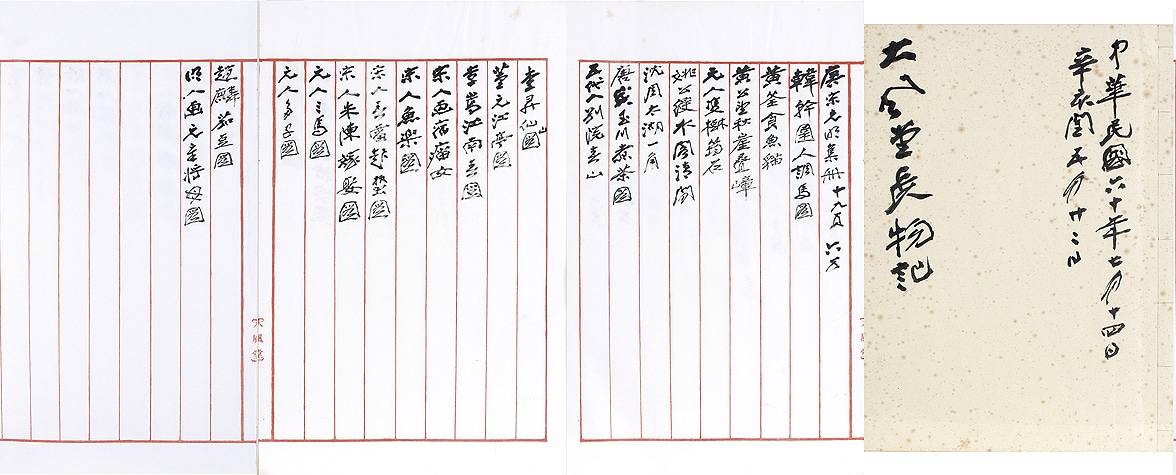 中華民國六十年七月十四日
辛亥閏五月廿二日
大風堂長物記
唐宋元明集册 十九頁 六万
韓幹圉人調馬圖
黄筌食魚貓
黄公望秋崖疊嶂
元人雙樹筠石
姚公綬水閣清
沈周太湖一角
唐 玉川煮茶圖
五代人別浣春山
李昇仙山圖
董元江亭圖
李嵩江南春圖
宋人画宿瘤女
宋人魚樂圖
宋人春雷起蟄圖
宋人朱陳嫁娶圖
元人三馬圖
元人多子圖
趙麟 茄豆圖
明人画 圖
大風堂